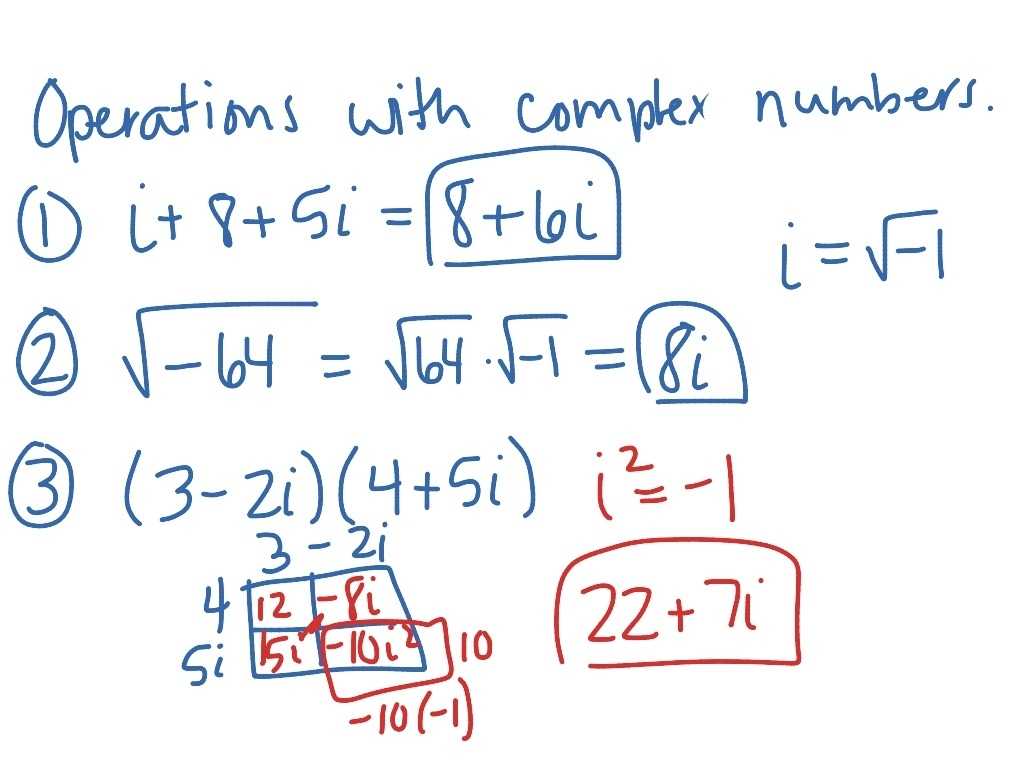 Operations with complex numbers.
① i + 8 + 5i = 8 + 6i
i = √-1
② √-64 = √64 · √-1 = 8i
③ (3 - 2i)(4 + 5i)
i² = -1
3 - 2i
4 12 -8i
5i 15i -10i² 10
-10(-1)
22 + 7i